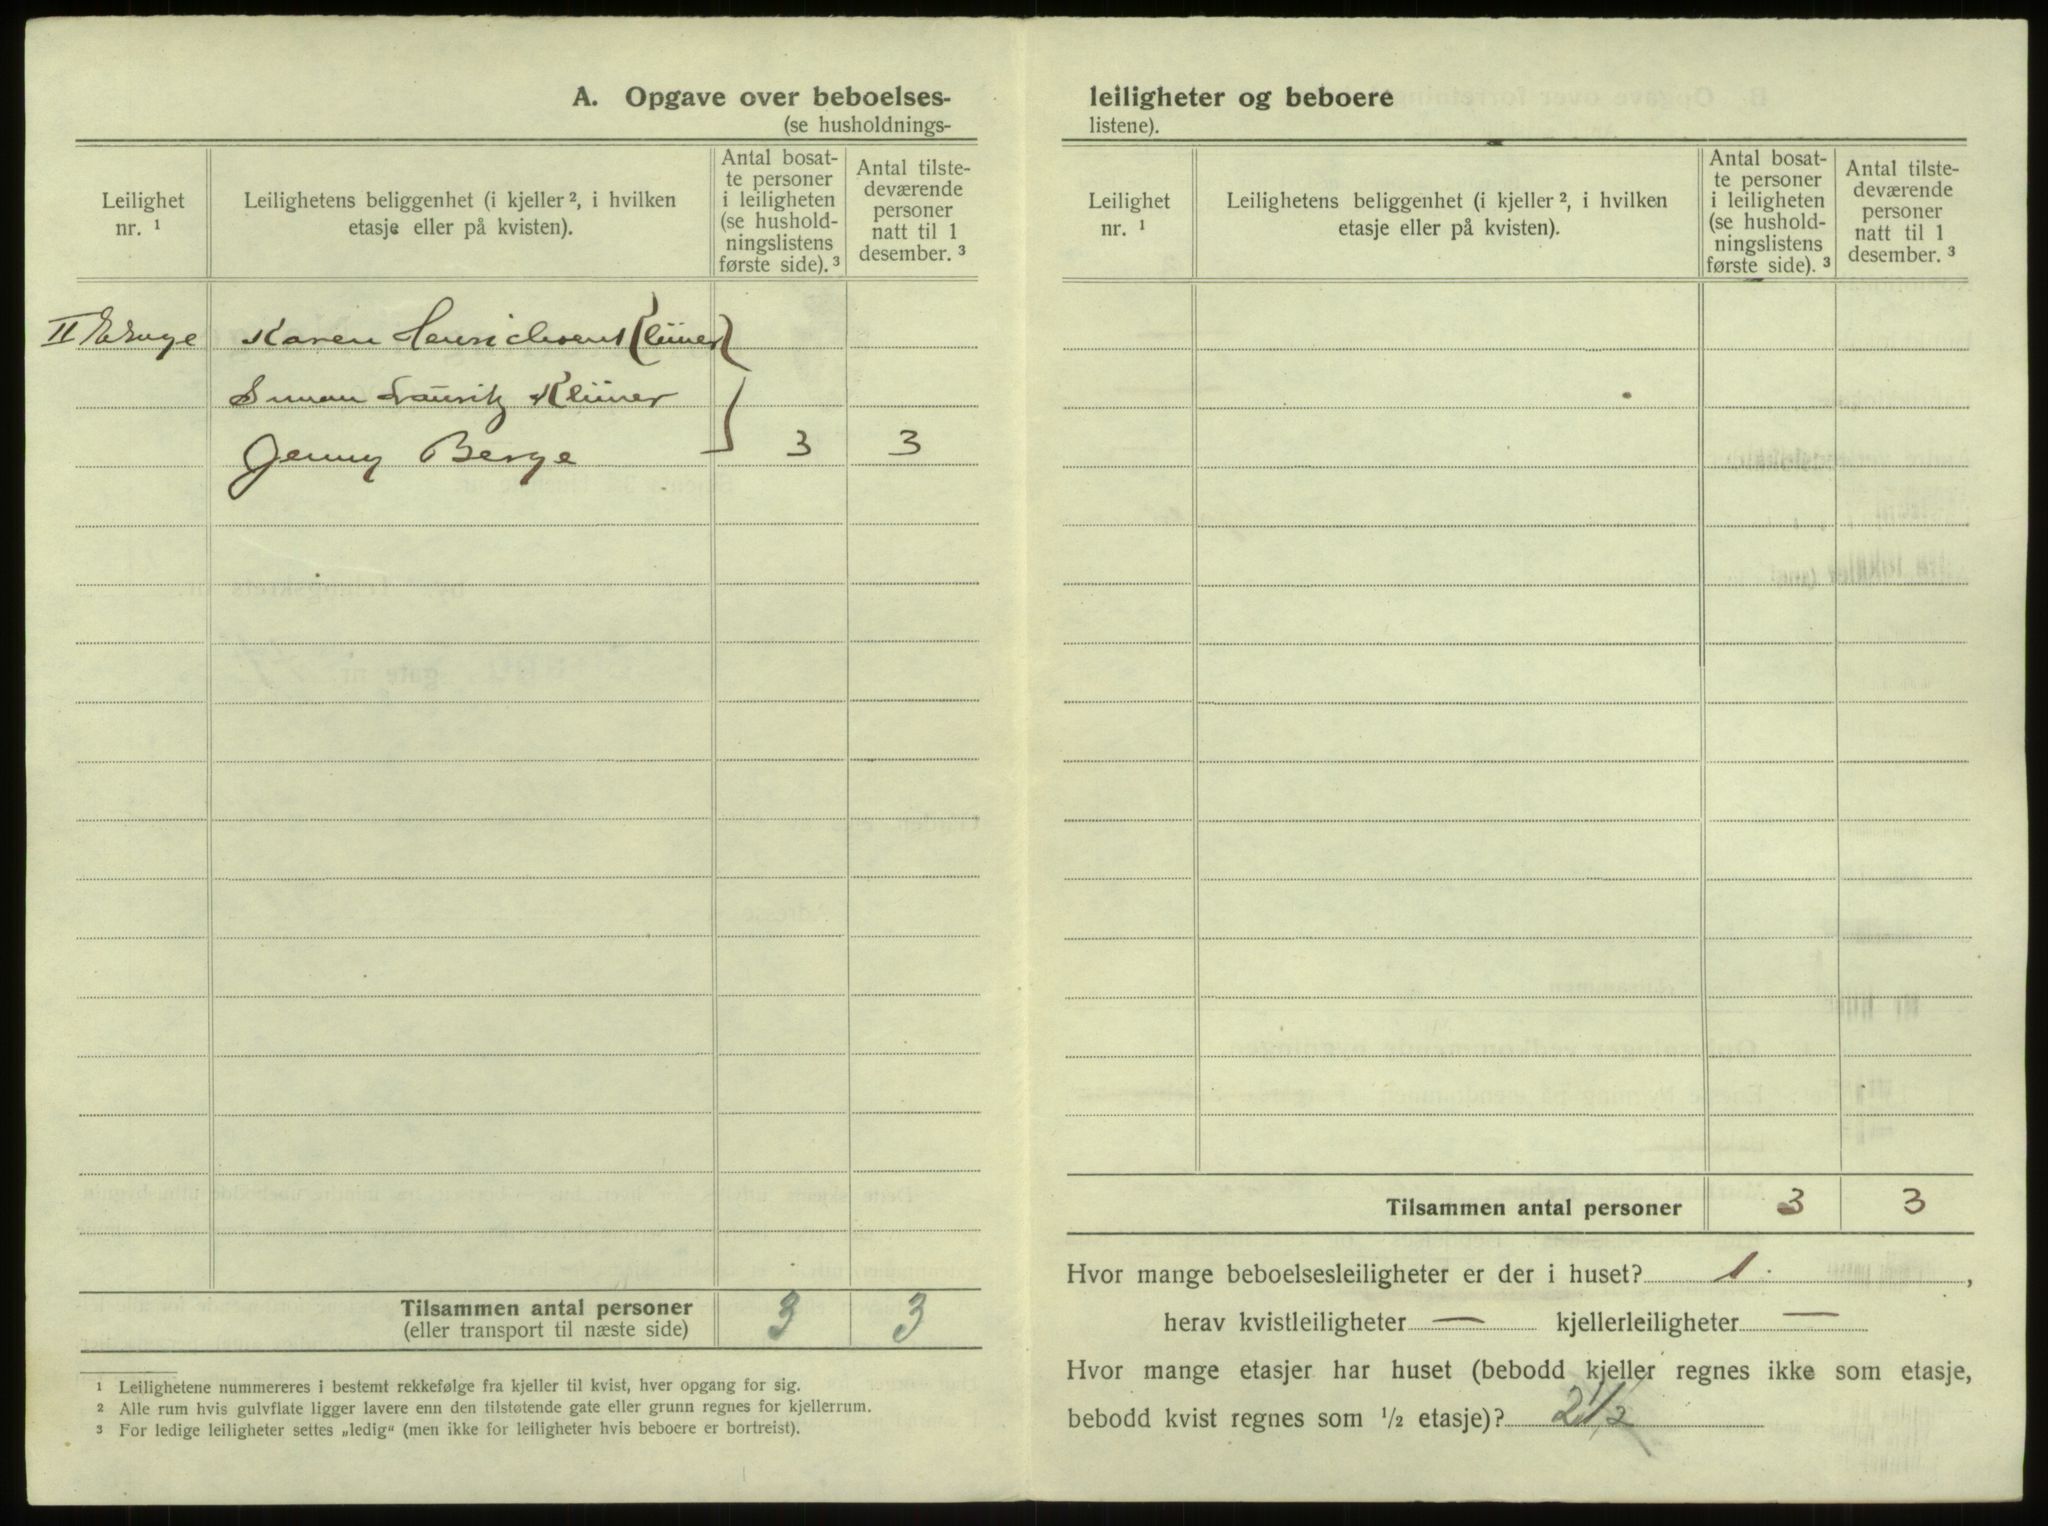 A. Opgave over beboelses-
(se husholdnings-
Leilighet
nr. 1
Leilighetens beliggenhet (i kjeller 2, i hvilken
etasje eller på kvisten).
Antal bosat-
te personer
i leiligheten
(se hushold-
ningslistens
første side). 3
Antal tilste-
deværende
personer
natt til 1
desember. 3
II Etage Karen Klüner
Lauritz Klüner
Jenny Berge 3 3
Tilsammen antal personer 3 3
(eller transport til næste side)
1 Leilighetene nummereres i bestemt rekkefølge fra kjeller til kvist, hver opgang for sig.
2 Alle rum hvis gulvflate ligger lavere enn den tilstøtende gate eller grunn regnes for kjellerrum.
3 For ledige leiligheter settes „ledig“ (men ikke for leiligheter hvis beboere er bortreist).
leiligheter og beboere
listene).
Leilighet
nr. 1
Leilighetens beliggenhet (i kjeller 2, i hvilken
etasje eller på kvisten).
Antal bosat-
te personer
i leiligheten
(se hushold-
ningslistens
første side). 3
Antal tilste-
deværende
personer
natt til 1
desember. 3
Tilsammen antal personer 3 3
Hvor mange beboelsesleiligheter er der i huset? 1.,
herav kvistleiligheter — kjellerleiligheter —
Hvor mange etasjer har huset (bebodd kjeller regnes ikke som etasje,
bebodd kvist regnes som 1/2 etasje)? 2 1/2